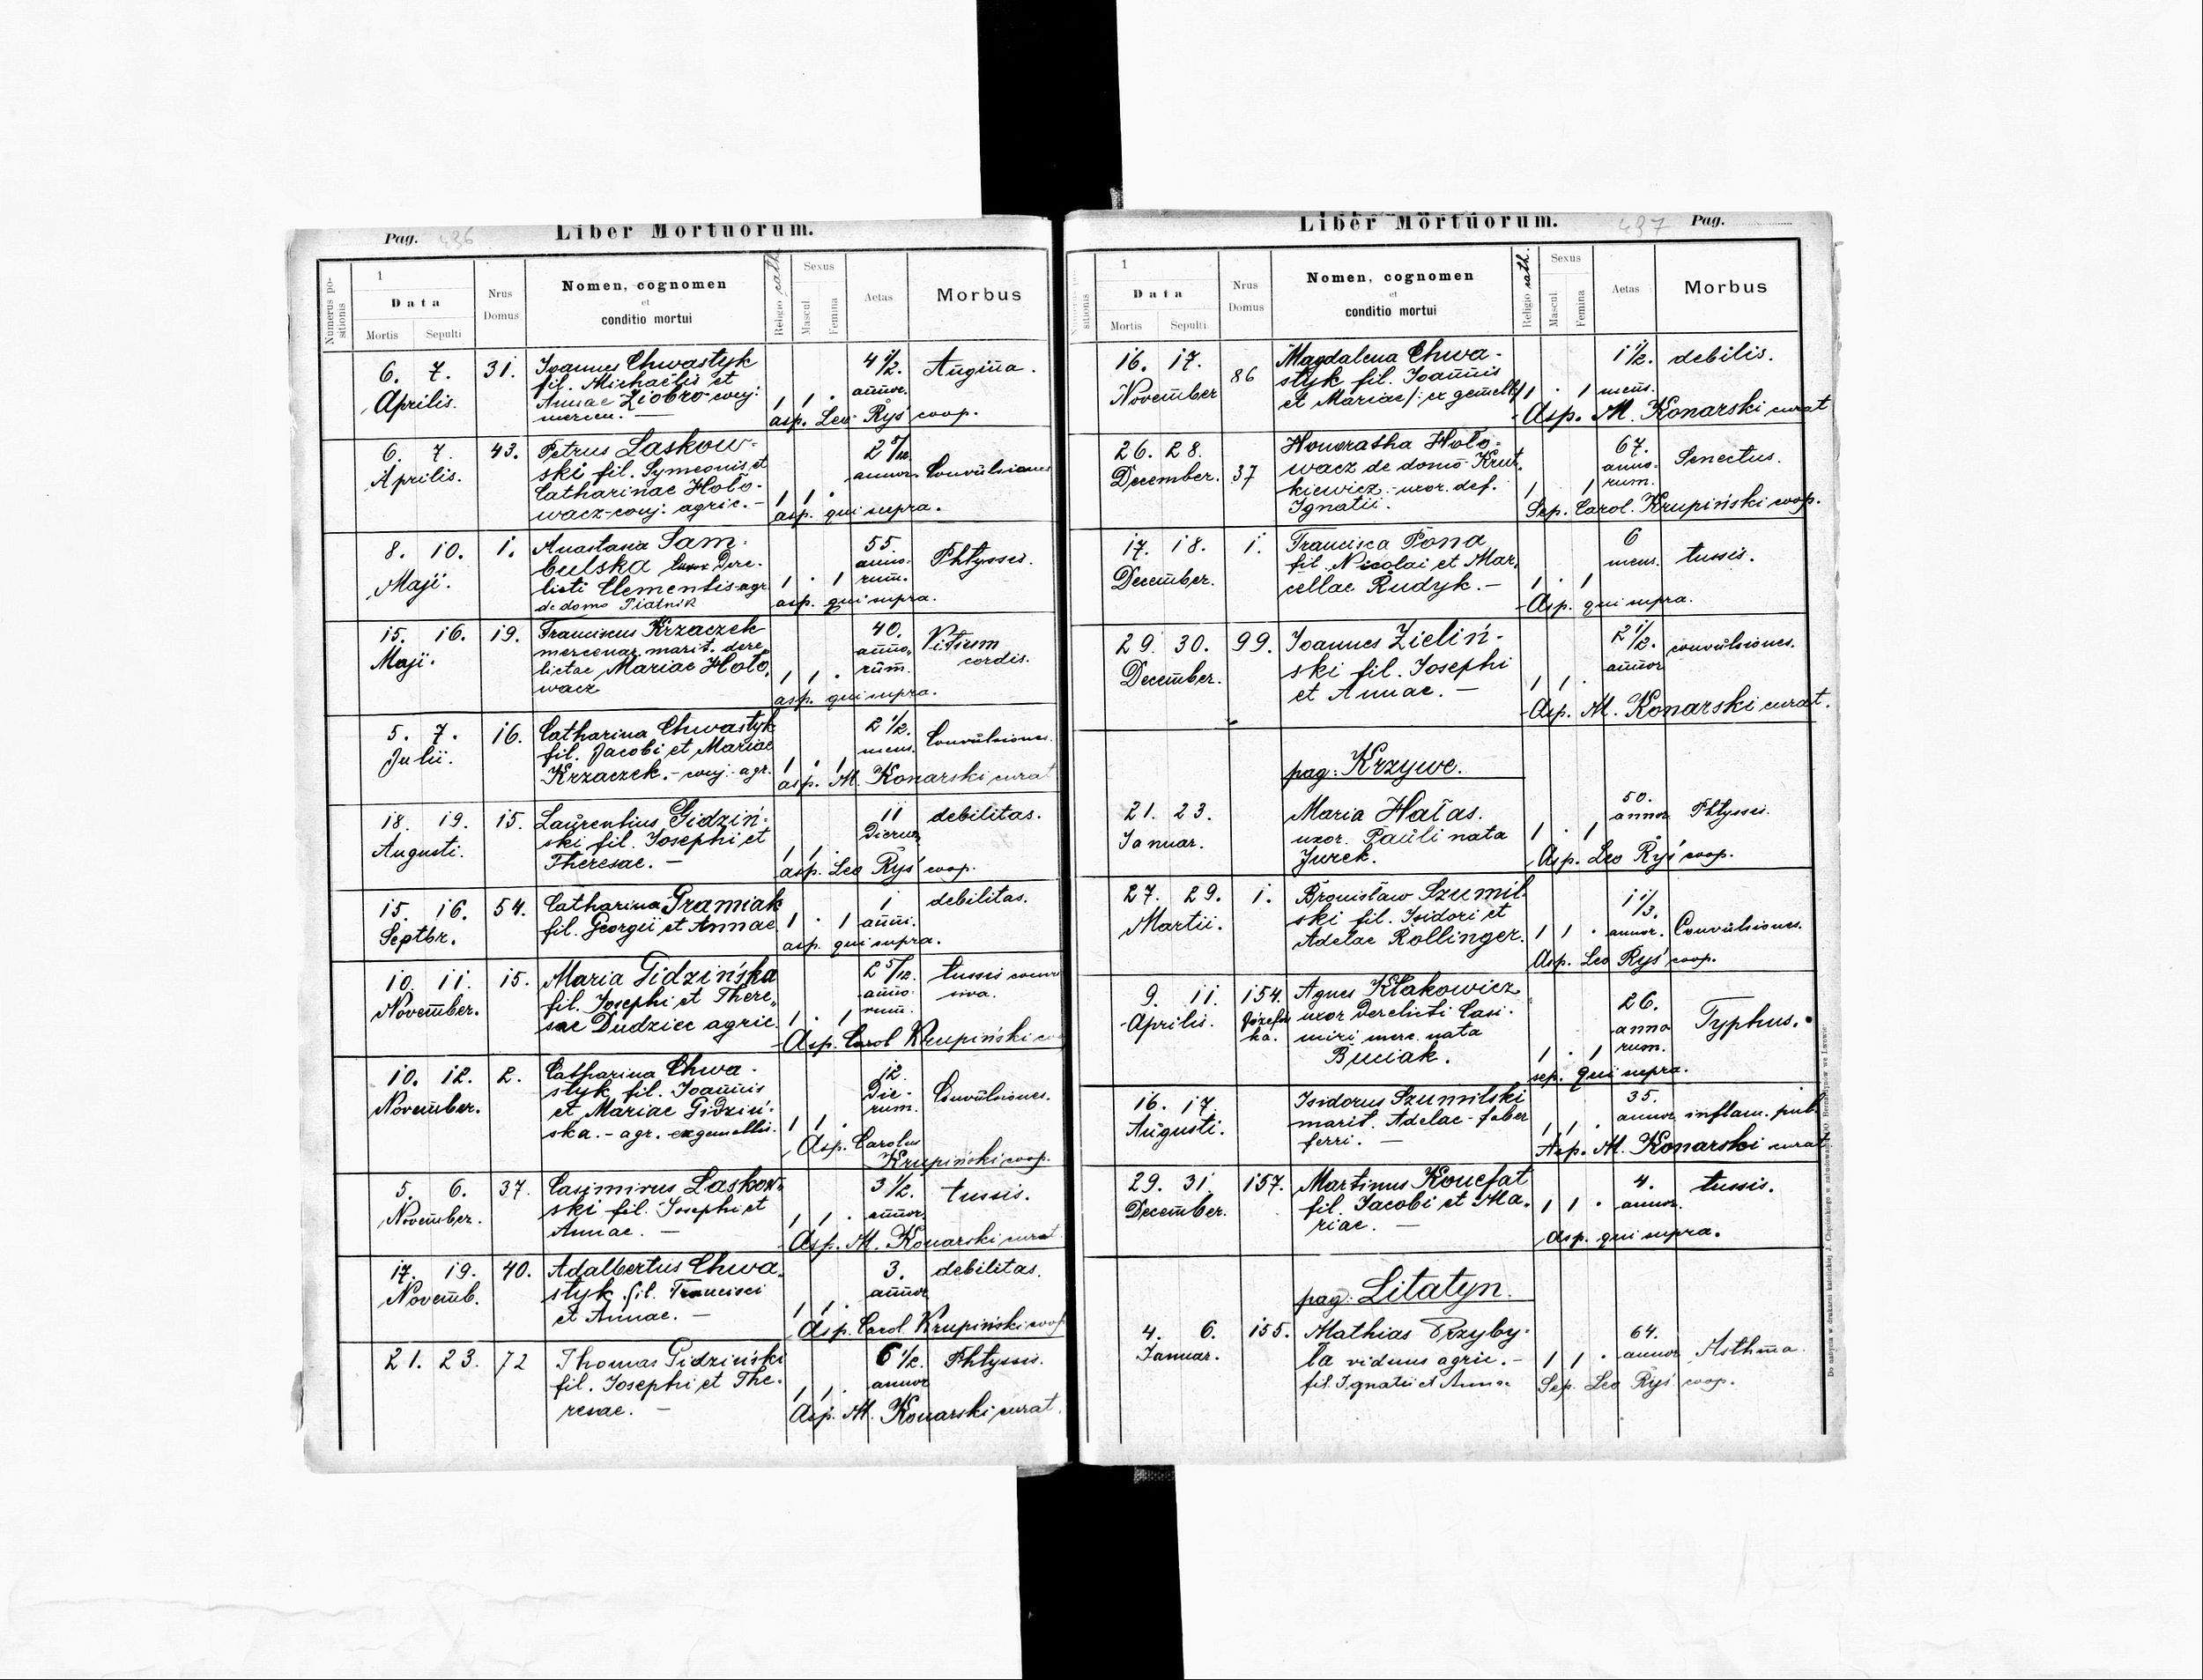 Liber Mortuorum.
Pag. 436
Numerus positionis
1
Data
Mortis Sepulti
Nrus Domus
Nomen, cognomen
et
conditio mortui
Religio cath.
Sexus
Mascul.
Femina
Aetas
Morbus
6. 7. 31. Joannes Chwastyk 4 1/2. Angina.
Aprilis. fil. Michaëlis et annor.
Annae Ziobro conj. 1 1 .
mercen. — asp. Leo Ryś coop.
6. 7. 43. Petrus Laskow- 2 5/12
Aprilis. ski fil. Symeonis et annor. Convulsiones
Catharinae Hoło- 1 1 .
wacz-conj. agric. — asp. qui supra.
8. 10. 1. Anastasia Sam- 55. Phtyssis.
Maji. bulska Dere- anno-
licti Clementis agr. 1 . 1 rum.
de domo Piatnik asp. qui supra.
15. 16. 19. Franciscus Krzaczek 40. Vitium
Maji. mercenar. marit. dere- anno- cordis.
lictae Mariae Hoło- 1 1 . rum.
wacz asp. qui supra.
5. 7. 16. Catharina Chwastyk 2 1/2. Convulsiones.
Julii. fil. Jacobi et Mariae mens.
Krzaczek. - conj. agr. 1 . 1
asp. M. Konarski curat
18. 19. 15. Laurentius Gidziń- 11 debilitas.
Augusti. ski fil. Josephi et Dierum
Theresae. — 1 1 .
asp. Leo Ryś coop.
15. 16. 54. Catharina Gramiak 1 debilitas.
Septbr. fil. Georgii et Annae 1 . 1 anni.
asp. qui supra.
10. 11. 15. Maria Gidzińska 2 5/12. tussis convul
November. fil. Josephi et There- anno- siva.
sae Dudziec agric. 1 . 1 rum.
Asp. Carol Krupiński co
10. 12. 2. Catharina Chwa- 12. Convulsiones.
November. styk fil. Joannis Die-
et Mariae Gidziń- rum.
ska. - agr. ex gemellis. 1 1 .
Asp. Carolus
Krupiński coop.
5. 6. 37. Casimirus Laskow- 3 1/2. tussis.
November. ski fil. Josephi et annor.
Annae. — 1 1 .
Asp. M. Konarski curat
17. 19. 40. Adalbertus Chwa- 3. debilitas.
Novemb. styk fil. Francisci annor
et Annae. — 1 1 .
Asp. Carol Krupiński coop
21. 23. 72 Thomas Gidziński 6 1/2. Phtyssis.
fil. Josephi et The- annor
resae. — 1 1 .
Asp. M. Konarski curat.
Liber Mortuorum.
437 Pag.
1
Data
Mortis Sepulti
Nrus Domus
Nomen, cognomen
et
conditio mortui
Religio cath.
Sexus
Mascul.
Femina
Aetas
Morbus
16. 17. 86 Magdalena Chwa- 1 1/2. debilis.
November styk fil. Joannis
et Mariae /: ex gemell:/ 1 . 1 mens.
Asp. M. Konarski curat
26. 28. 37 Honoratha Hoło- 67. Senectus.
December. wacz de domo Krut- anno-
kiewicz - uxor. def. 1 1 rum.
Ignatii. Sep. Carol. Krupiński coop.
17. 18. 1. Francisca Pona 6 tussis.
December. fil. Nicolai et Mar- mens.
cellae Rudyk. — 1 . 1
Asp. qui supra.
29. 30. 99. Joannes Zieliń- 2 1/2. convulsiones.
December. ski fil. Josephi annor
et Annae. — 1 1 .
Asp. M. Konarski curat.
pag: Krzywe.
21. 23. Maria Hałas. 50. Phtyssis.
Januar. uxor. Pauli nata 1 . 1 annor
Jurek. Asp. Leo Ryś coop.
27. 29. 1. Bronisław Szumil- 1 1/3.
Martii. ski fil. Isidori et
Adelae Rollinger. 1 1 . annor. Convulsiones.
Asp. Leo Ryś coop.
9. 11. 154. Agnes Kłakowicz 26. Typhus.
Aprilis. Józefówka. uxor Derelicti Casi- anno
miri merc. nata rum.
Buciak. 1 . 1
sep. qui supra.
16. 17. Isidorus Szumilski 35.
Augusti. marit. Adelae - faber annor inflam. pul.
ferri. — 1 1 .
Asp. M. Konarski curat
29. 31. 157. Martinus Konefat 4. tussis.
December. fil. Jacobi et Ma- 1 1 . annor.
riae. — Asp. qui supra.
pag. Litatyn.
4. 6. 155. Mathias Przyby- 64.
Januar. ła viduus agric. — 1 1 . annor Asthma.
fil. Ignatii et Annae Sep. Leo Ryś coop.